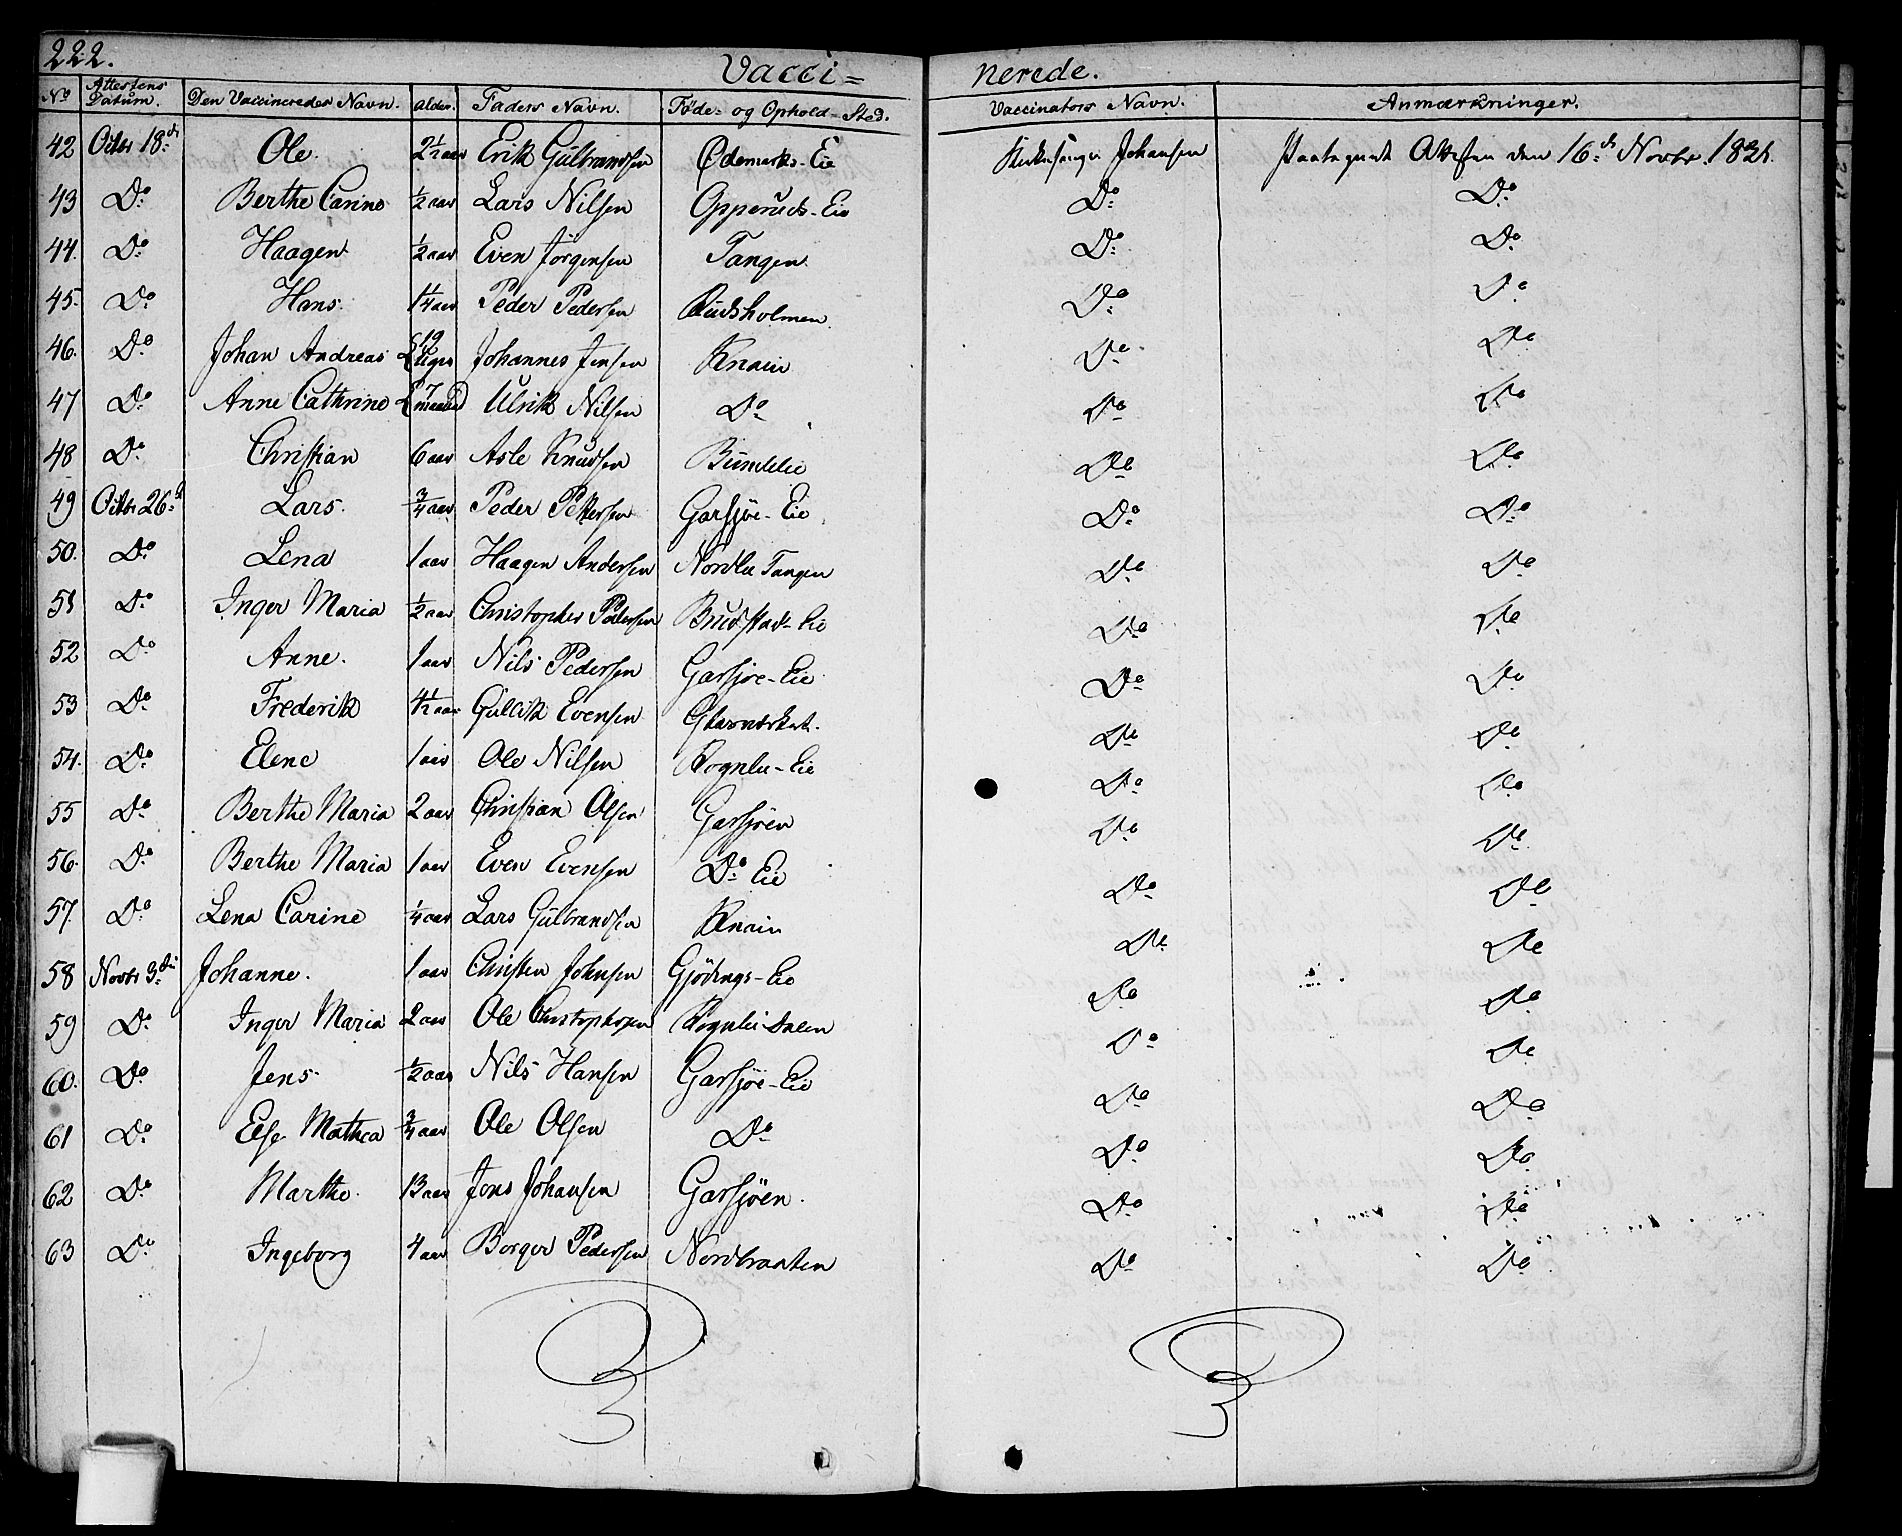 222. Vacci= nerede.
No Attestens Datum. Den Vaccineredes Navn. alder. Faders Navn. Føde- og Ophold-Sted. Vaccinators Navn. Anmærkninger.
42 Octbr 18de Ole. 2½ aar Erik Gulbrandsen Ødemarks-Eie Kirkesanger Johansen Attesten den 16de Novbr.
43 Do Berthe Carine ½ aar Lars Nilsen Opperuds-Eie Do Do
44. Do Haagen ½ aar Even Jørgensen Tangen. Do Do
45. Do Hans. 1¼ aar Peder Pedersen Rudsholmen Do Do
46. Do Johan Andreas 19 Uger Johannes Jensen Knain Do Do
47 Do Anne Cathrine 7 maaned Ulrik Nilsen Do Do Do
48 Do Christian 6 aar Asle Knudsen Do Do
49 Octbr 26de Lars. ¾ aar Peder Pettersen Garsjøe-Eie Do Do
50. Do Lena 1 aar Haagen Andersen Nordlie Tangen Do Do
51 Do Inger Maria ½ aar Christopher Pedersen Brudstad-Eie Do Do
52 Do Anne. 1 aar Nils Pedersen Garsjøe-Eie Do Do
53 Do Frederik 4½ aar Gullik Evensen Glasværket. Do Do
54. Do Elene 1 aar Ole Nilsen Rognlie-Eie Do Do
55 Do Berthe Maria 2 aar Christian Olsen Garsjøen Do Do
56. Do Berthe Maria 1 aar Even Evensen Do Eie Do Do
57. Do Lena Carine ¼ aar Lars Gulbrandsen Knain Do Do
58 Novbr 3die Johanne. 1 aar Christen Johnsen Gjødings-Eie Do Do
59 Do Inger Maria 2 aar Ole Christophersen Rognlie-Dalen Do Do
60. Do Jens. ½ aar Nils Hansen Garsjøe-Eie Do Do
61 Do Else Mathea ¾ aar Ole Olsen Do Do Do
62 Do Marthe. 13 aar Jens Johansen Garsjøen. Do Do
63 Do Ingeborg 4 aar Borger Pedersen Nordbraaten Do Do